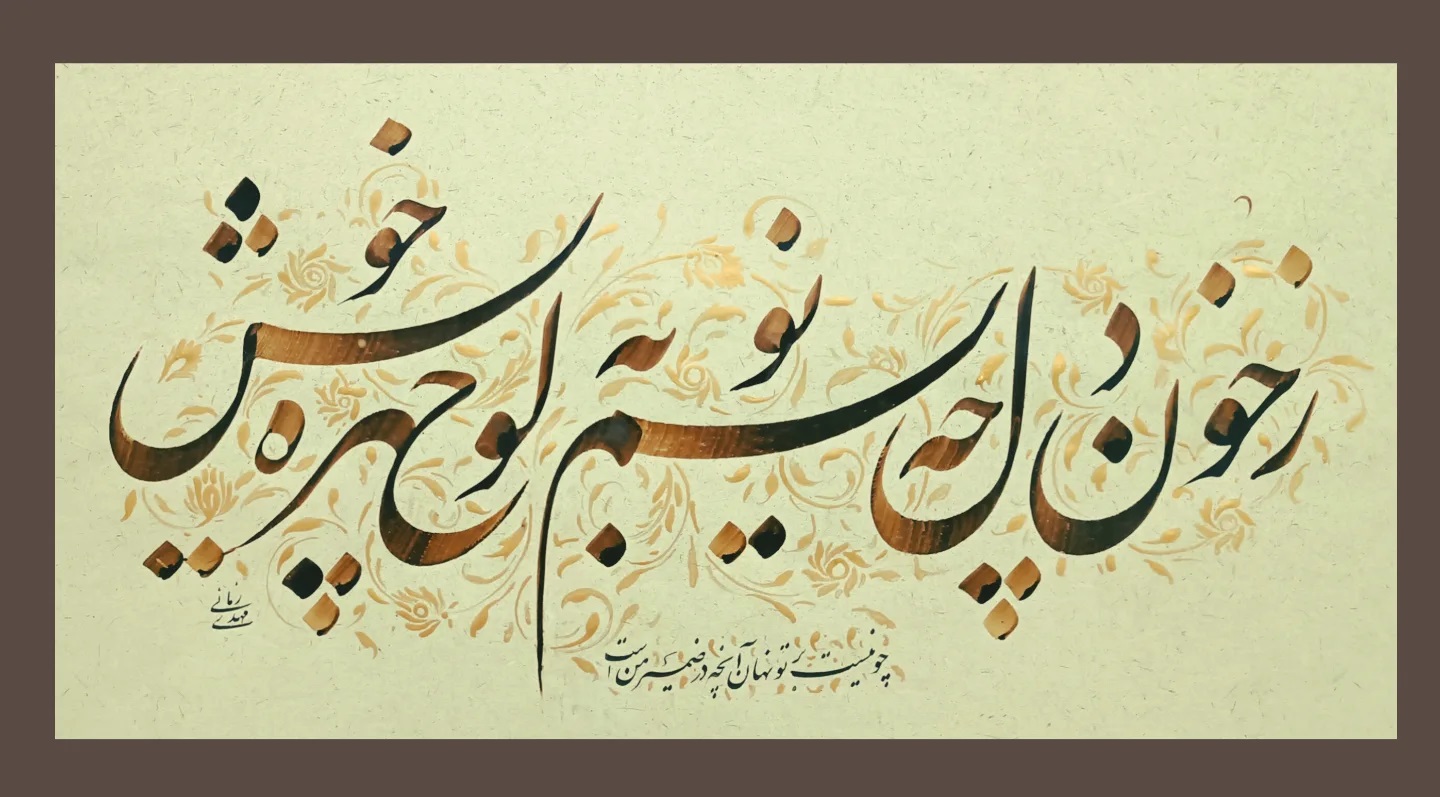 ز خون دل چه نویسم به لوح چهره خویش
چو نیست بر تو نهان آنچه در ضمیر من است
مهدی زمانی